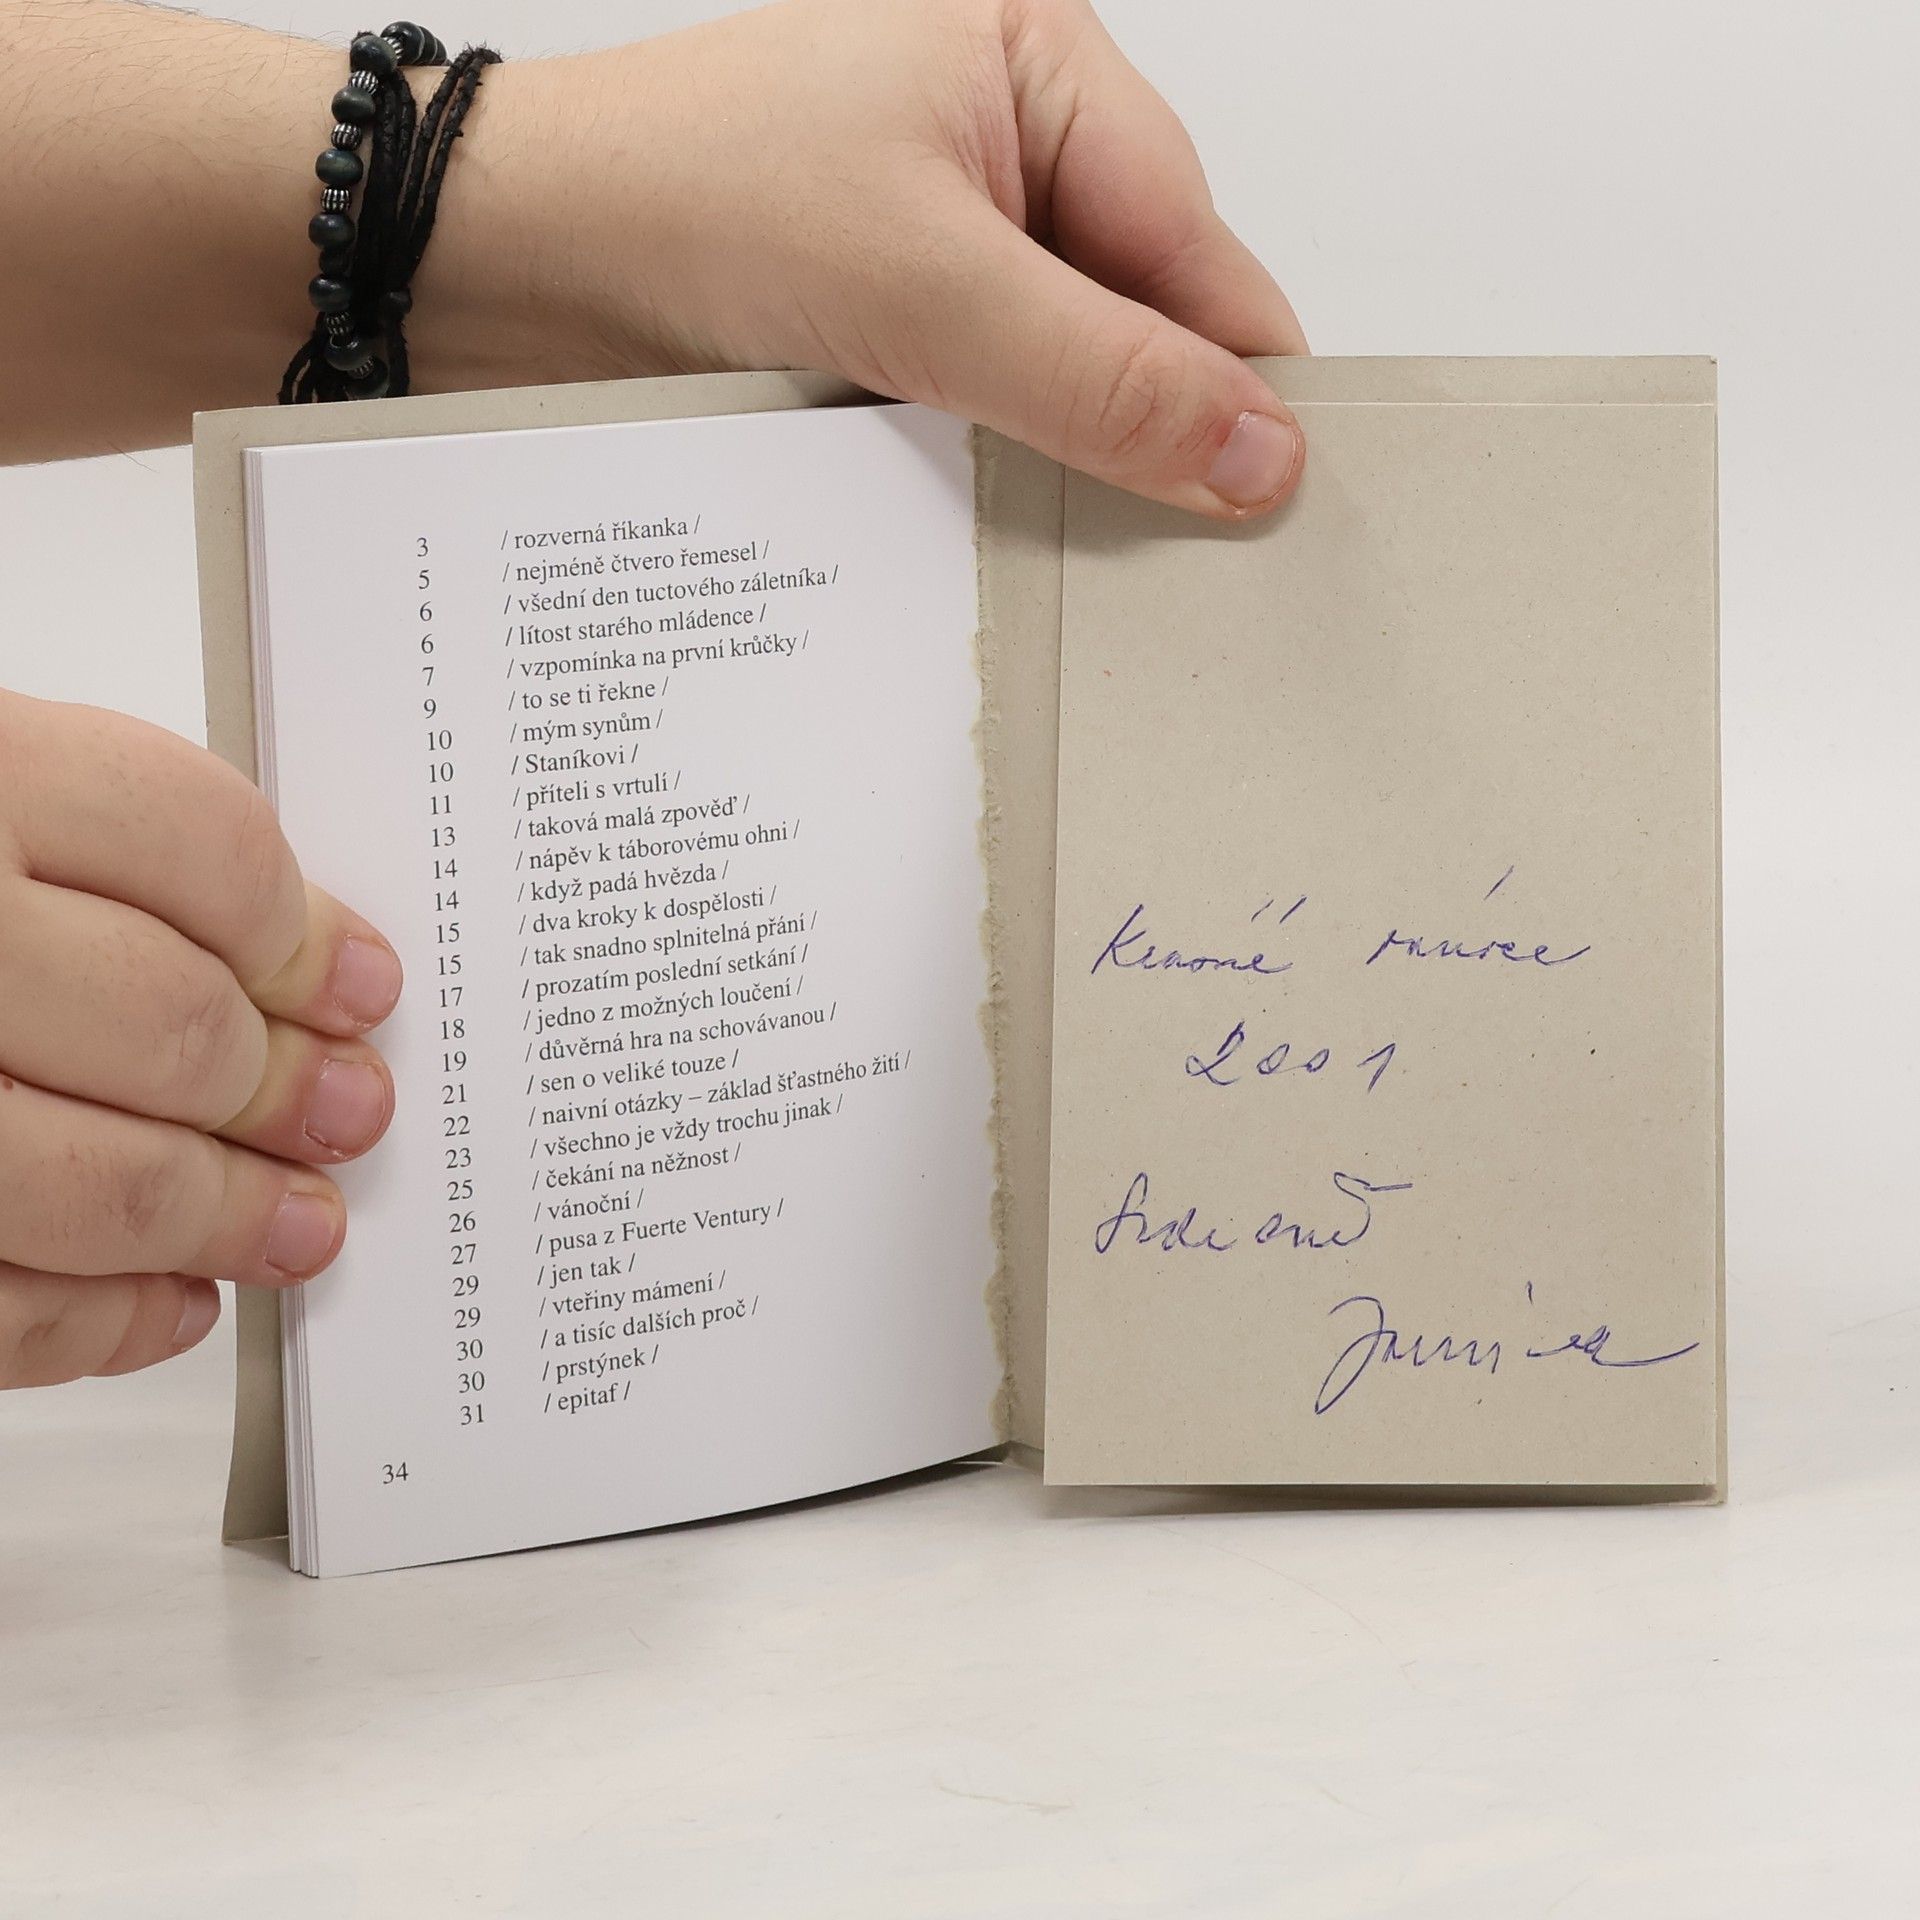 3 / rozverná říkanka /
5 / nejméně čtvero řemesel /
6 / všední den tuctového záletníka /
6 / lítost starého mládence /
7 / vzpomínka na první krůčky /
9 / to se ti řekne /
10 / mým synům /
10 / Staníkovi /
11 / příteli s vrtulí /
13 / taková malá zpověď /
14 / nápěv k táborovému ohni /
14 / když padá hvězda /
15 / dva kroky k dospělosti /
15 / tak snadno splnitelná přání /
17 / prozatím poslední setkání /
18 / jedno z možných loučení /
19 / důvěrná hra na schovávanou /
21 / sen o veliké touze /
22 / naivní otázky – základ šťastného žití /
23 / všechno je vždy trochu jinak /
25 / čekání na něžnost /
26 / vánoční /
27 / pusa z Fuerte Ventury /
29 / jen tak /
29 / vteřiny mámení /
30 / a tisíc dalších proč /
30 / prstýnek /
31 / epitaf /
34
Krásné vánoce
2001
Srdečně